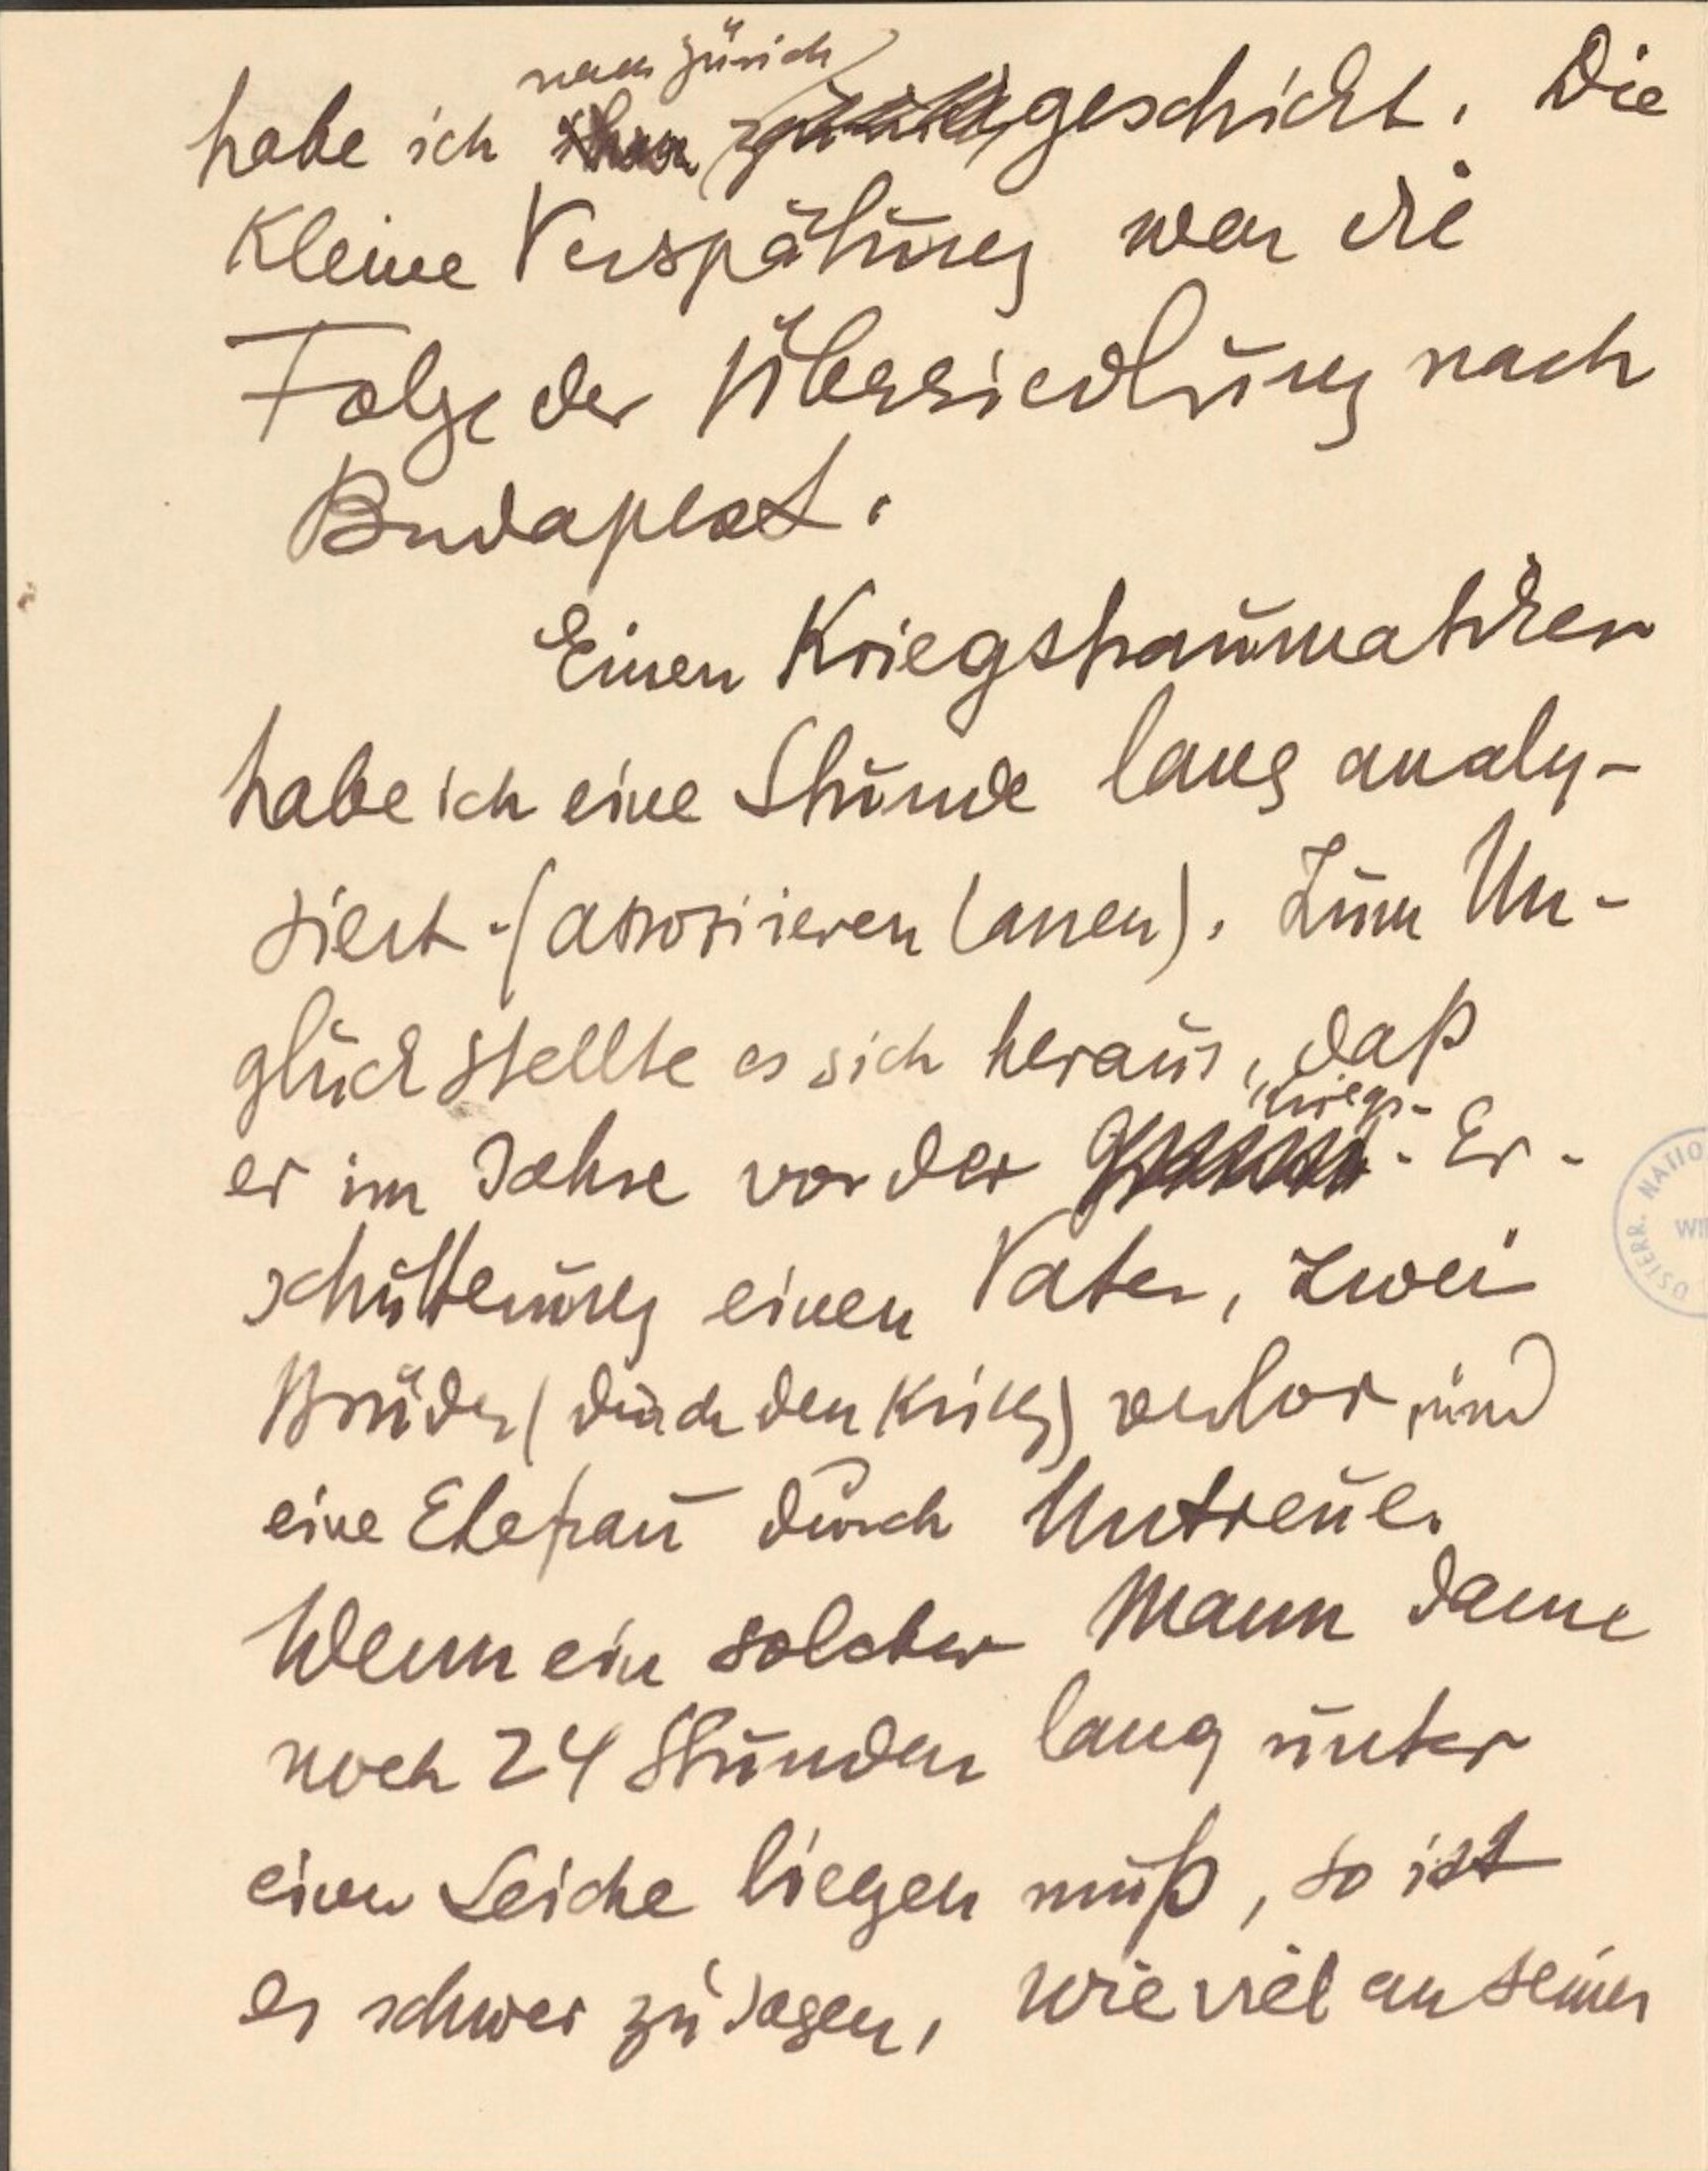 nach Zürich
habe ich geschickt. Die
kleine Verspätung war die
Folge der Übersiedlung nach
Budapest.
Einen Kriegstraumatiker
habe ich eine Stunde lang analy-
siert (assoziieren lassen). Zum Un-
glück stellte es sich heraus, daß
Kriegs-
er im Jahre vor der - Er-
schütterung einen Vater, zwei
Brüder (durch den Krieg) verlor und
eine Ehefrau durch Untreue.
Wenn ein solcher Mann dann
noch 24 Stunden lang unter
einer Leiche liegen muß, so ist
es schwer zu sagen, wie viel an seiner
ÖSTERR. NATIO
WI